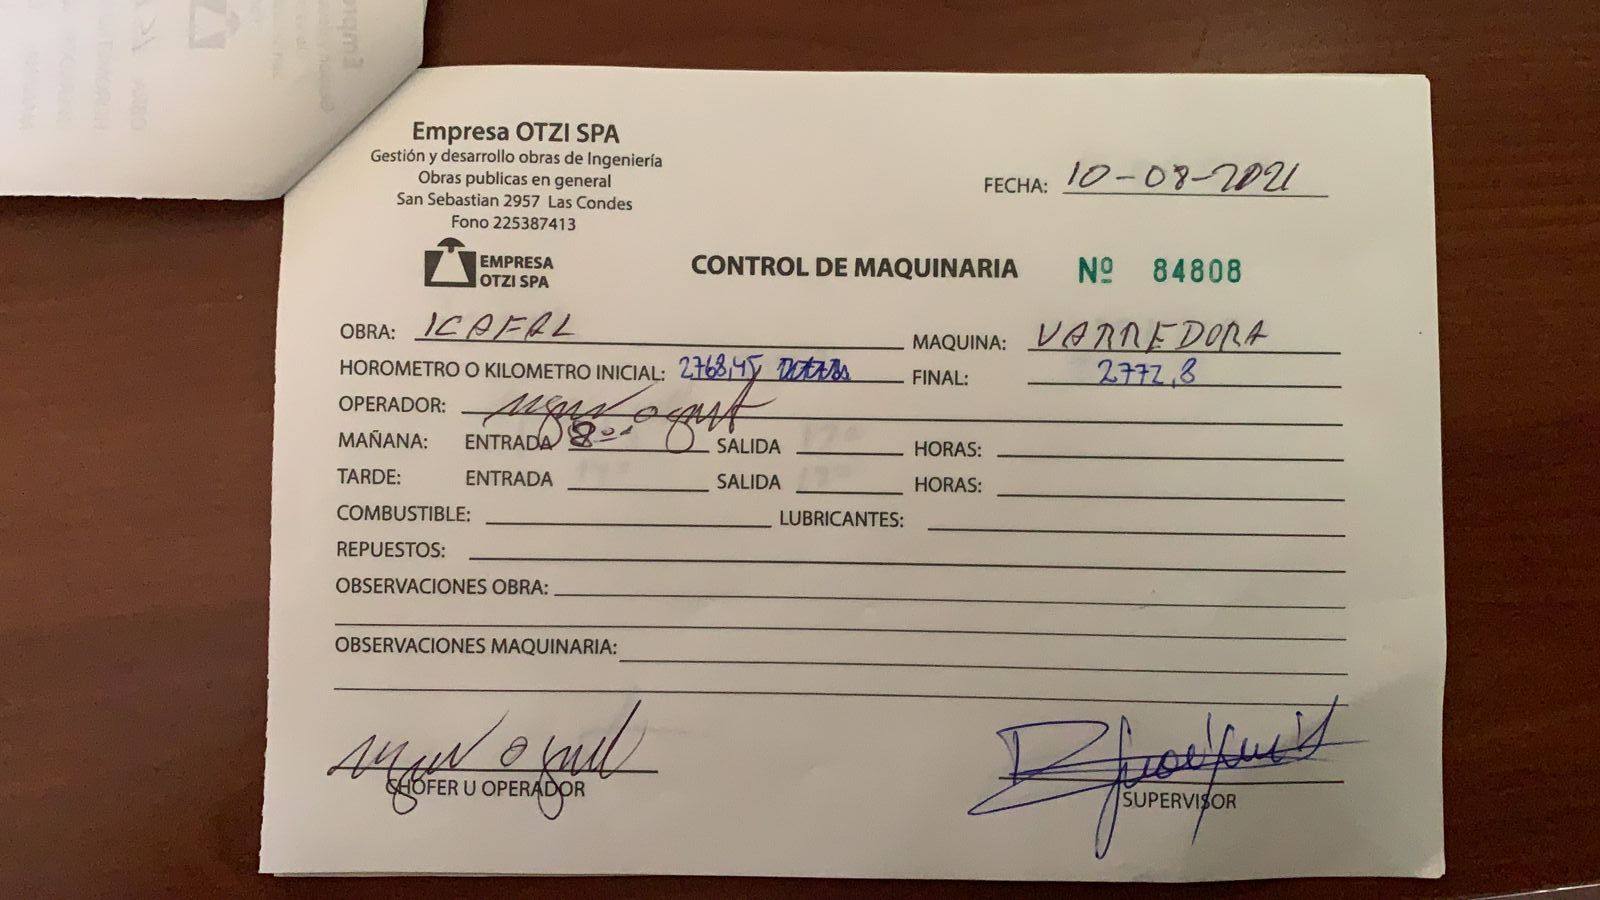 Empresa OTZI SPA
Gestión y desarrollo obras de Ingeniería
Obras publicas en general
San Sebastian 2957 Las Condes
Fono 225387413
FECHA: 10-08-2021
EMPRESA
OTZI SPA
CONTROL DE MAQUINARIA Nº 84808
OBRA: ICAFAL MAQUINA: VARREDORA
HOROMETRO O KILOMETRO INICIAL: 2768,45 FINAL: 2772,8
OPERADOR:
MAÑANA: ENTRADA 8:00 SALIDA HORAS:
TARDE: ENTRADA SALIDA HORAS:
COMBUSTIBLE: LUBRICANTES:
REPUESTOS:
OBSERVACIONES OBRA:
OBSERVACIONES MAQUINARIA:
CHOFER U OPERADOR SUPERVISOR